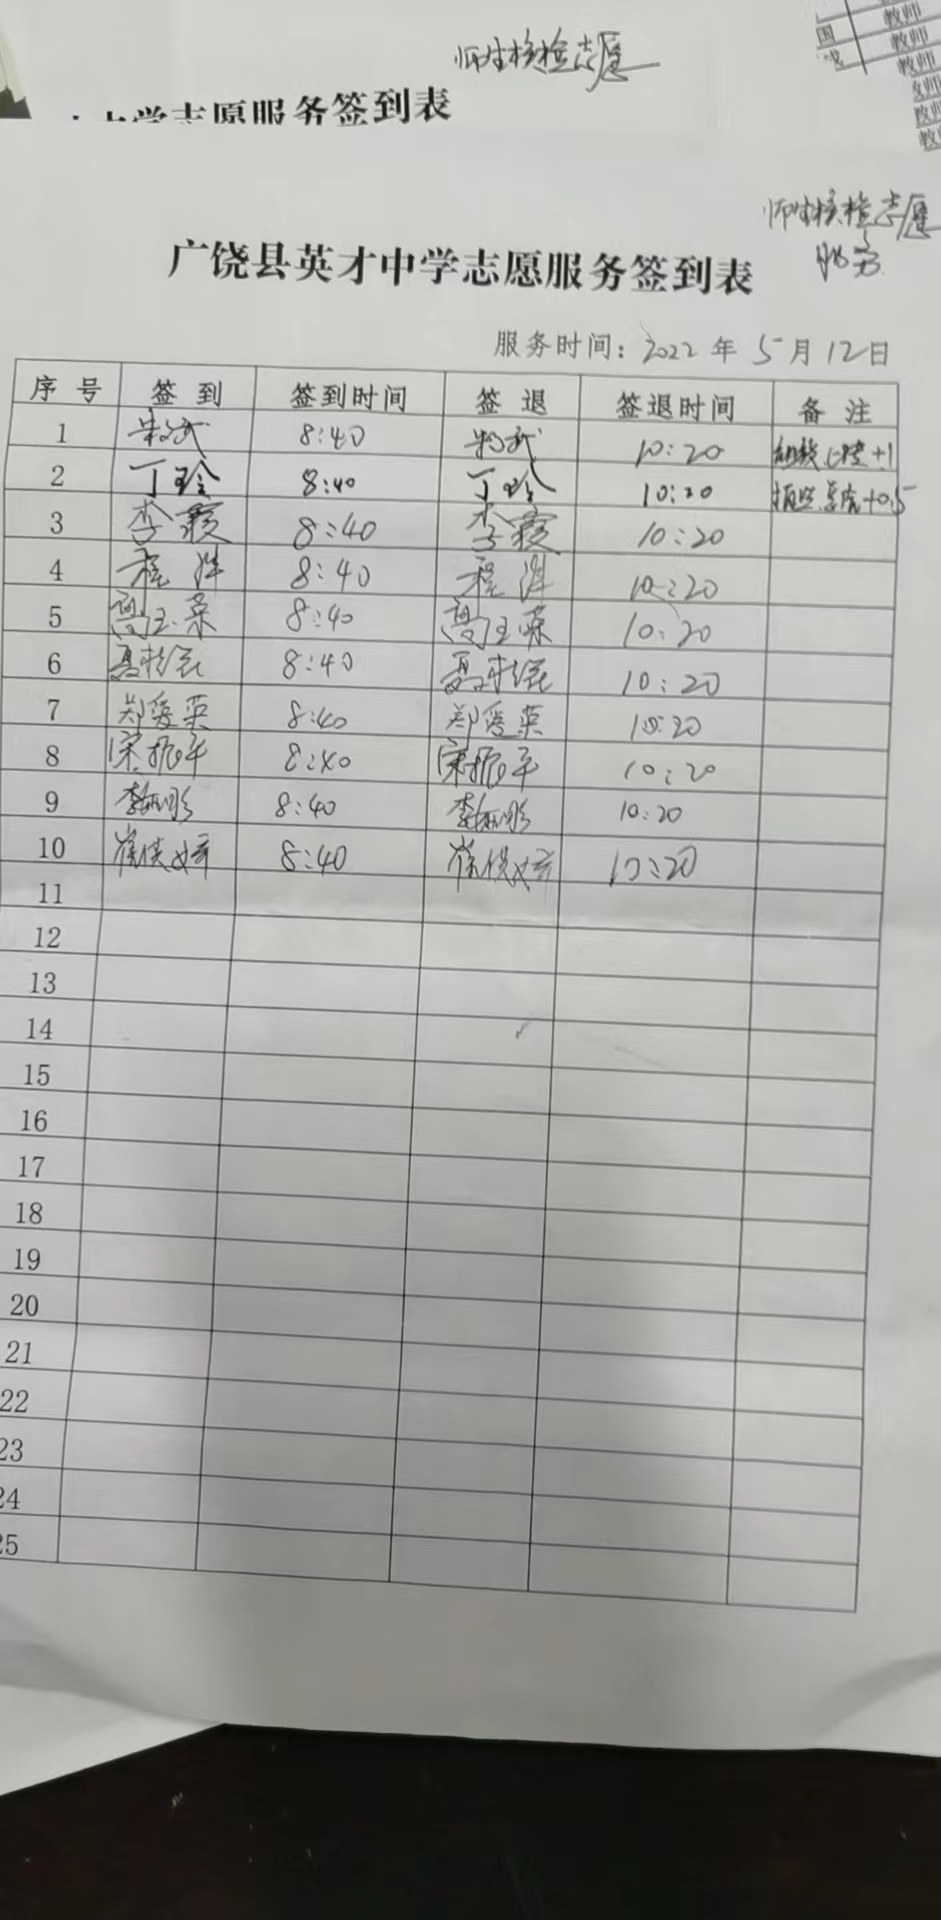 师生核检志愿
中学志愿服务签到表
国 教师
教师
教师
教师
教师
教师
师生核检志愿
服务
广饶县英才中学志愿服务签到表
服务时间：2022 年 5 月 12 日
序 号 签 到 签到时间 签 退 签退时间 备 注
1 8:40 10:20 +1
2 丁玲 8:40 丁玲 10:20 +0.5
3 李霞 8:40 李霞 10:20
4 程洋 8:40 程洋 10:20
5 高玉荣 8:40 高玉荣 10:20
6 8:40 10:20
7 郑爱英 8:40 郑爱英 10:20
8 宋振平 8:40 宋振平 10:20
9 李 8:40 李 10:20
10 崔 8:40 崔 10:20
11
12
13
14
15
16
17
18
19
20
21
22
23
24
25